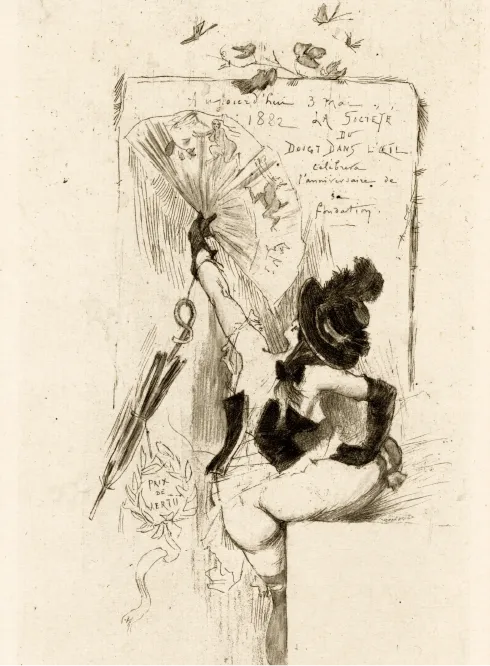 Aujourd'hui 3 mai
1882 LA SOCIETE
DU
DOIGT DANS L'ŒIL
célébrera
l'anniversaire de
sa
fondation.
PRIX
DE
VERTU